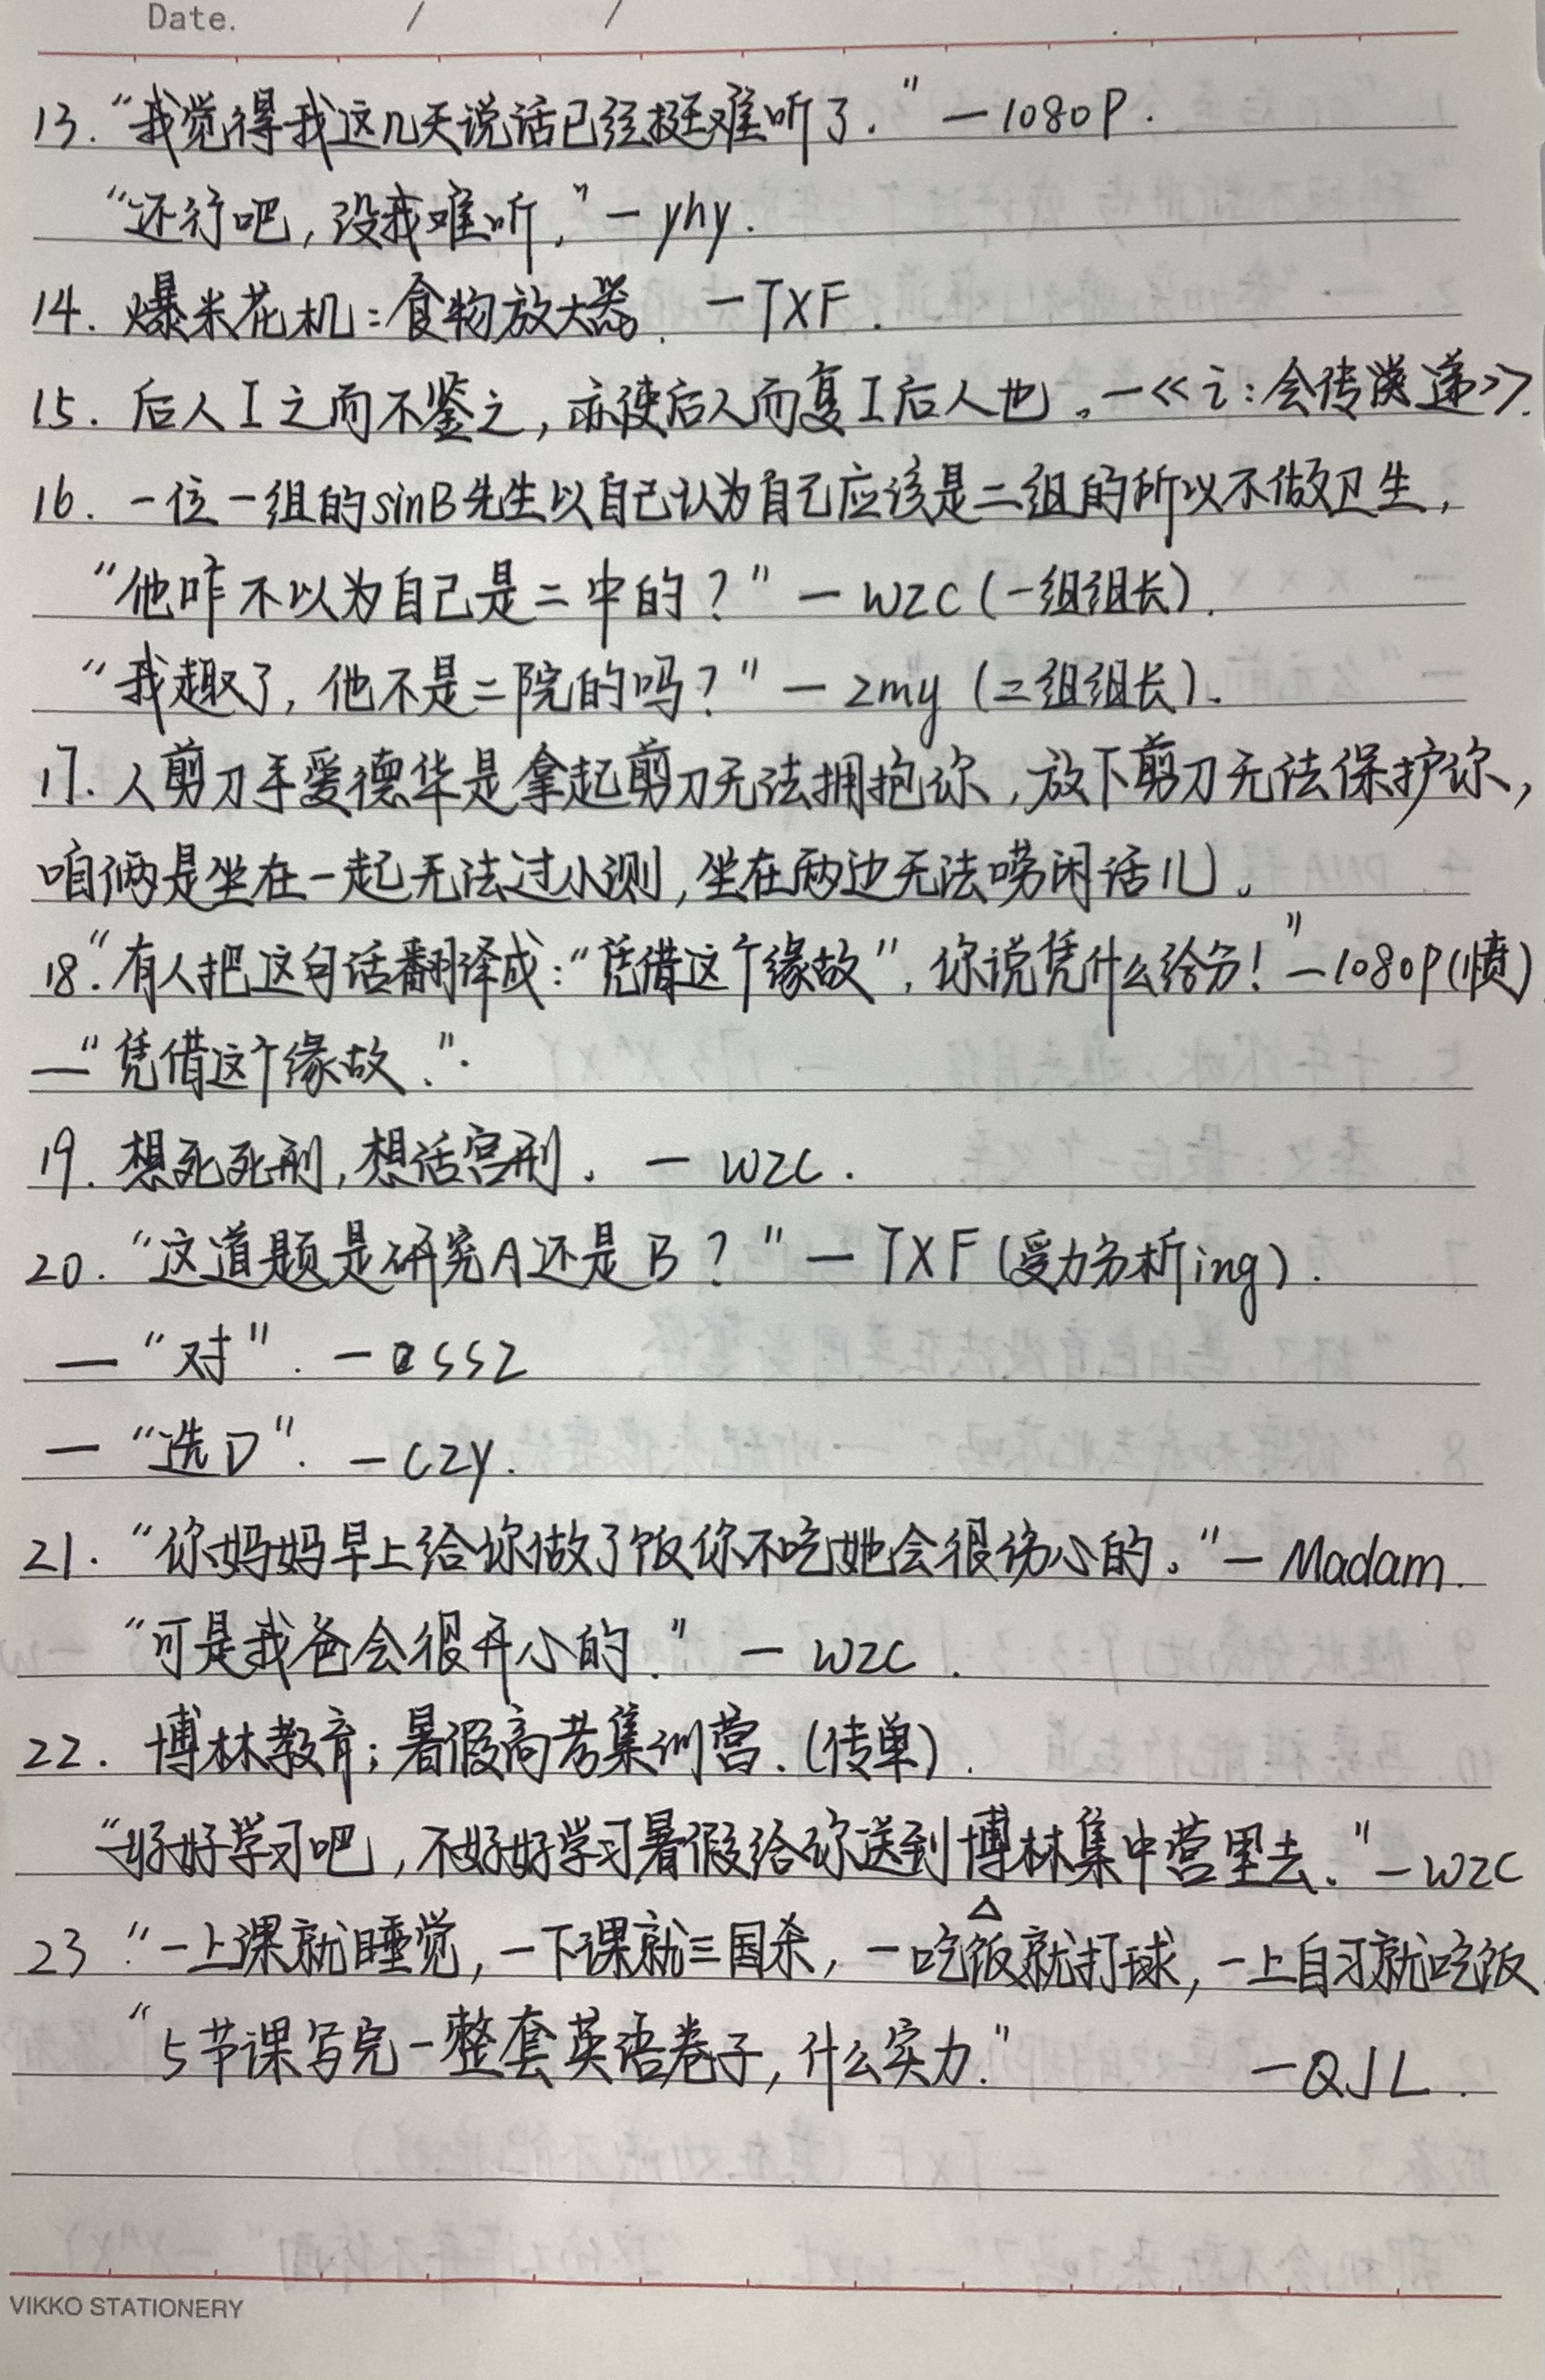 Date. / /
13. “我觉得我这几天说话已经挺难听了.” —1080P.
“还行吧，没我难听.” — yhy.
14. 爆米花机：食物放大器. —TXF.
15. 后人I之而不鉴之，亦使后人而复I后人也。—<<i：会传递>>.
16. 一位一组的sinB先生以自己认为自己应该是二组的所以不做卫生，
“他咋不以为自己是二中的？” — WZC (一组组长).
“我趣了，他不是二院的吗？” — zmy (二组组长).
17. 人剪刀手爱德华是拿起剪刀无法拥抱你，放下剪刀无法保护你，
咱俩是坐在一起无法过小测，坐在两边无法唠闲话儿。
18.“有人把这句话翻译成：“凭借这个缘故”，你说凭什么给分！” —1080P(愤)
—“凭借这个缘故.”.
19. 想死死刑，想活宫刑。 — WZC.
20. “这道题是研究A还是B？” — TXF (受力分析ing).
— “对”. — SSZ
— “选D”. — CZY.
21. “你妈妈早上给你做了饭你不吃她会很伤心的。” — Madam.
“可是我爸会很开心的.” — WZC.
22. 博林教育；暑假高考集训营.(传单).
“好好学习吧，不好好学习暑假给你送到博林集中营里去。”—WZC
23 “一上课就睡觉，一下课就三国杀，一吃饭就打球，一上自习就吃饭
“5节课写完一整套英语卷子，什么实力.” —QJL.
VIKKO STATIONERY